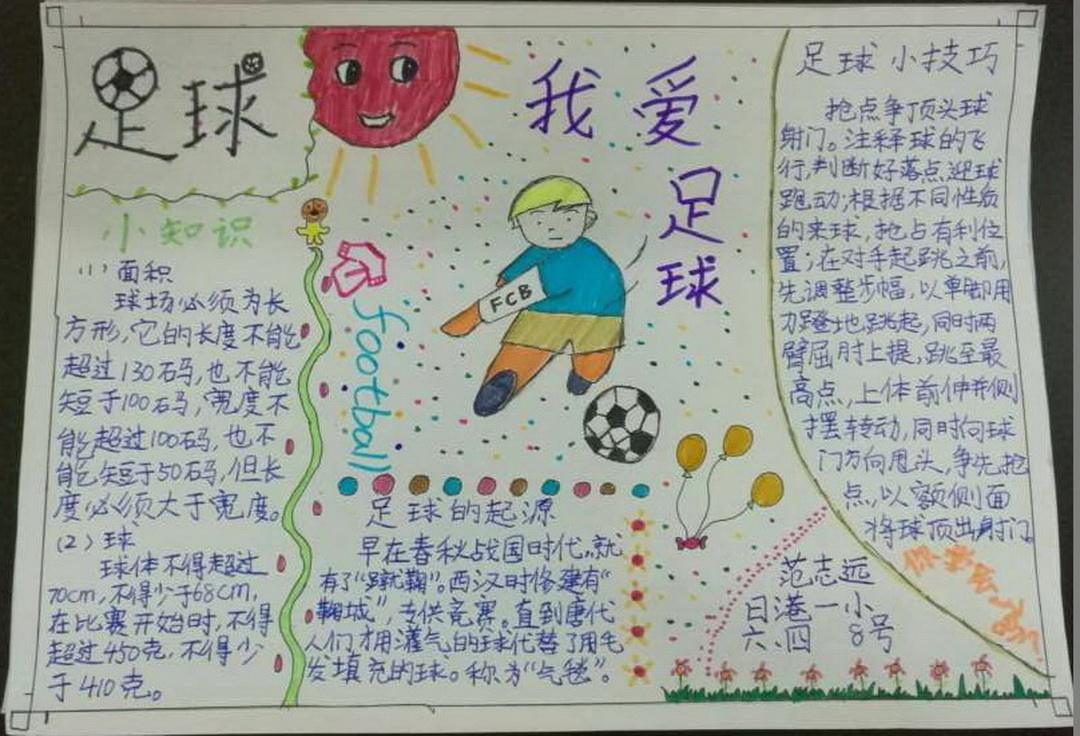 足球
小知识
(1)面积
球场必须为长
方形,它的长度不能
超过130石码,也不能
短于100石码,宽度不
能超过100码,也不
能短于50石码,但长
度必须大于宽度。
(2)球
球体不得超过
70cm,不得少于68cm,
在比赛开始时,不得
超过450克,不得少
于410克。
football
我爱
足
球
FCB
足球的起源
早在春秋战国时代,就
有了“蹴鞠”。西汉时修建有“
鞠城”,专供竞赛。直到唐代
人们才用灌气的球代替了用毛
发填充的球。称为“气毬”。
足球小技巧
抢点争顶头球
射门。注释球的飞
行,判断好落点,迎球
跑动;根据不同性质
的来球,抢占有利位
置;在对手起跳之前,
先调整步幅,以单脚用
力蹬地跳起,同时两
臂屈肘上提,跳至最
高点,上体前伸并侧
摆转动,同时向球
门方向甩头,争先抢
点,以额侧面
将球顶出射门
你学会了吗
范志远
日港一小
六.四 8号